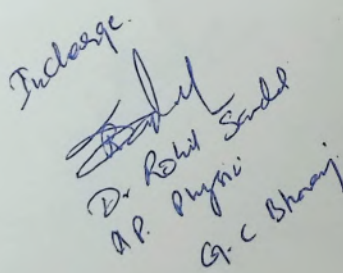 Incharge.
Dr Rohit Sandal
AP. Physics
G.C Bharari